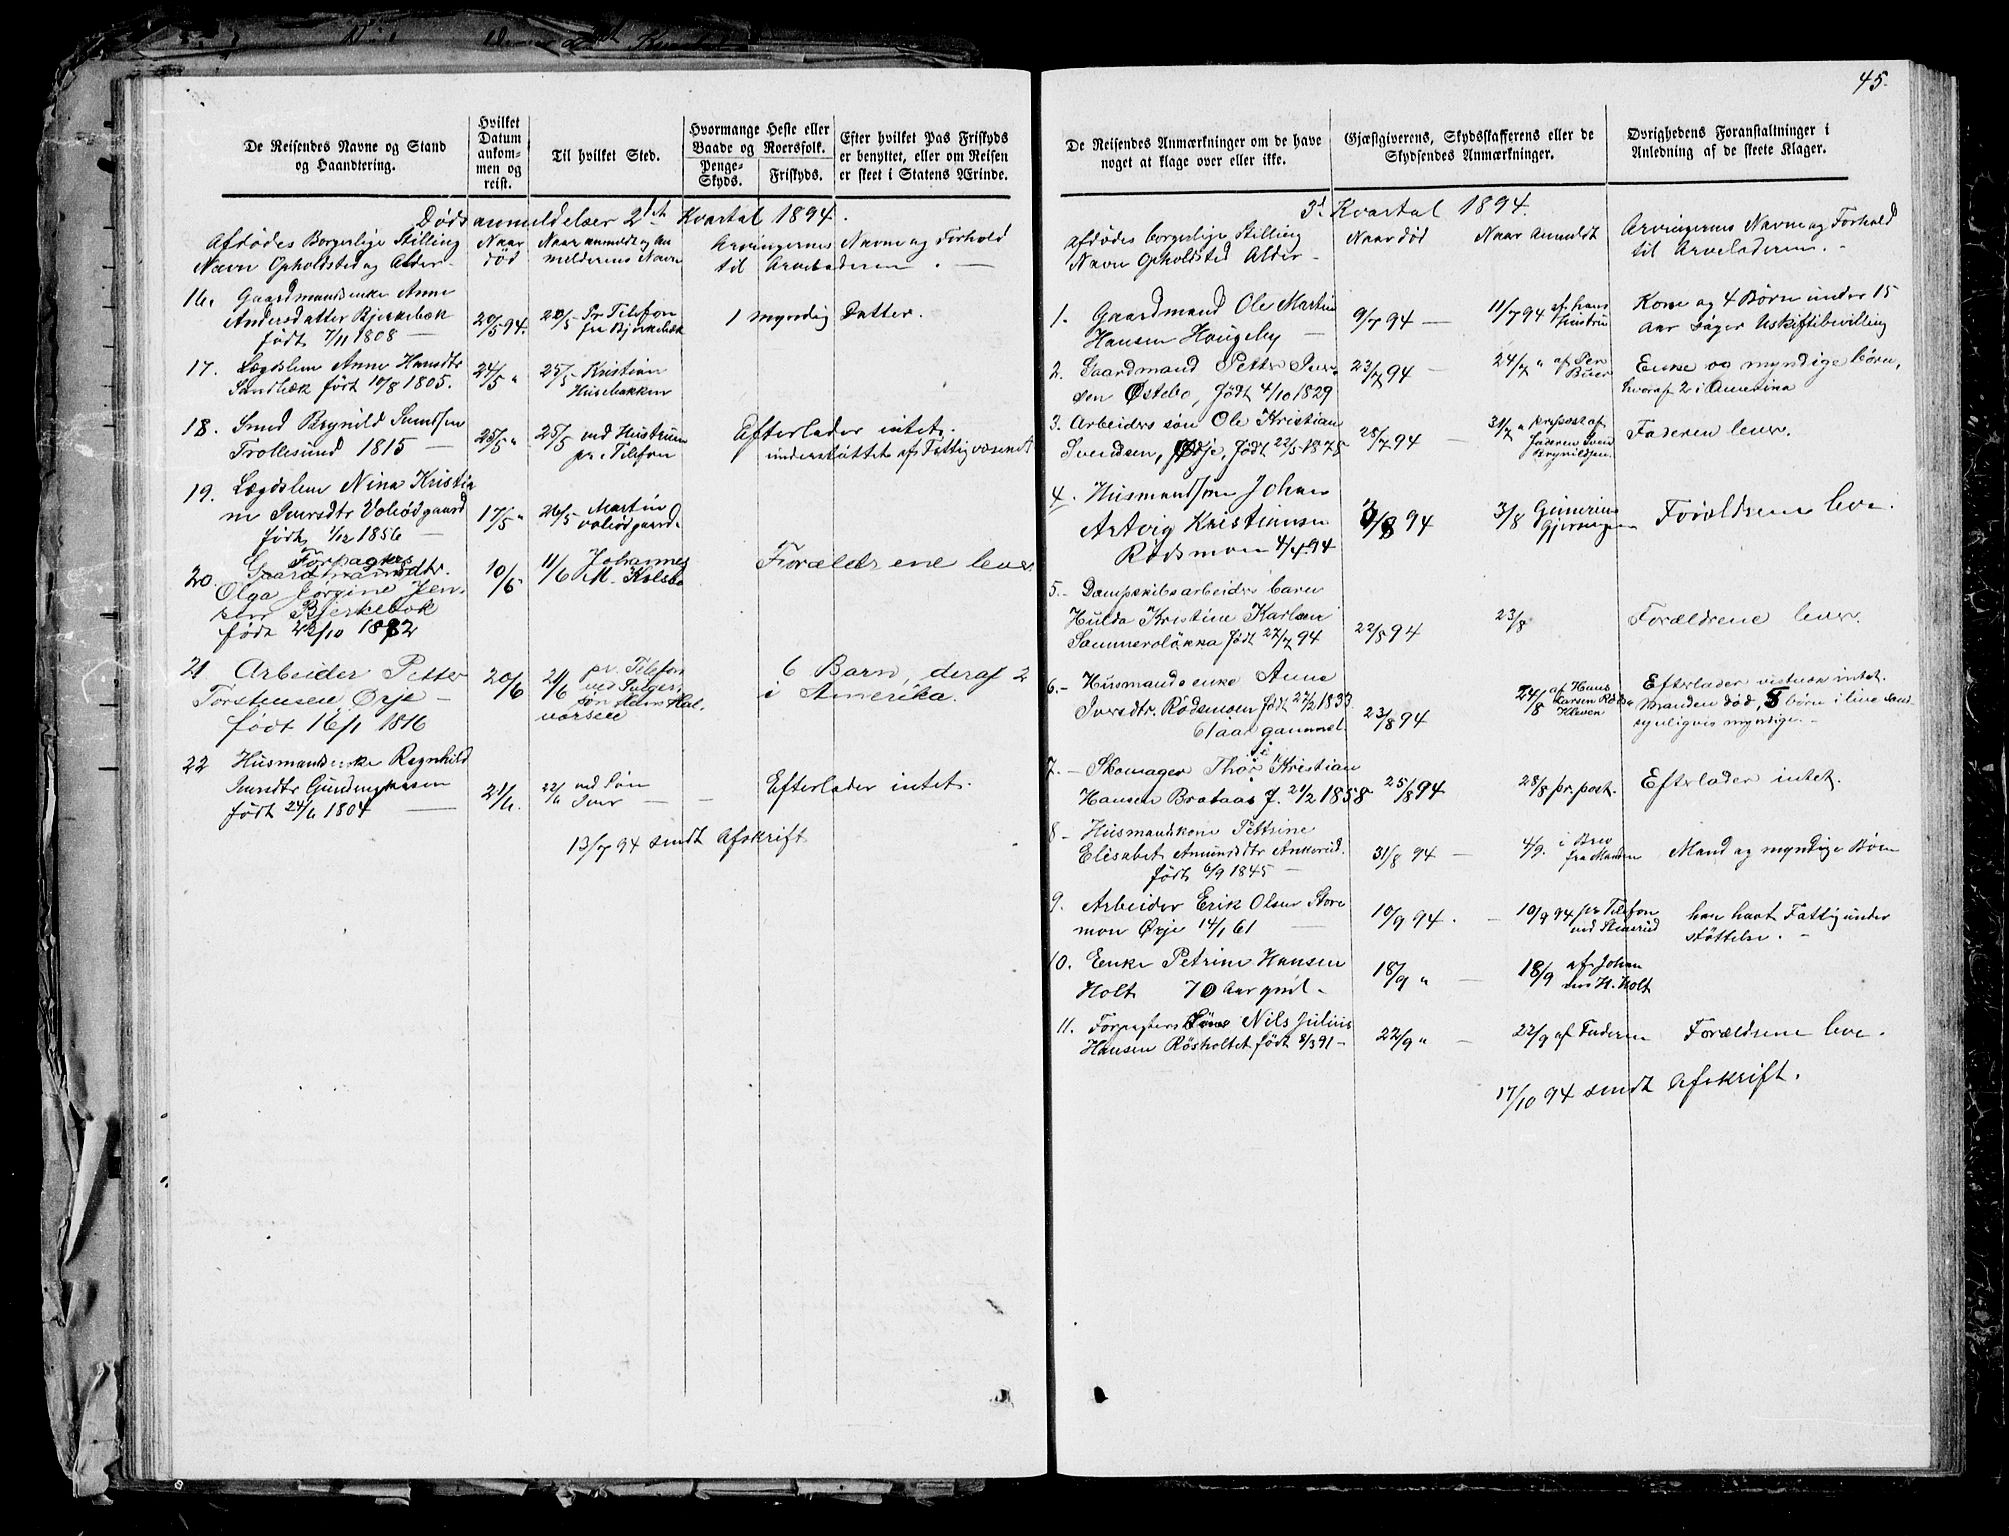 De Reisendes Navne og Stand
og Haandtering.
Hvilket
Datum
ankom-
men og
reist.
Til hvilket Sted.
Hvormange Heste eller
Baade og Roersfolk.
Penge-
Skyds.
Friskyds.
Efter hvilket Pas Friskyds
er benyttet, eller om Reisen
er skeet i Statens Ærinde.
Dødsanmeldelser 2det Kvartal 1894.
Afdødes Borgerlige Stilling
Navn Opholdsted og Alder
Naar
død
Naar anmeldt og An
melderens Navn
Arvingernes Navne og Forhold
til Arveladeren. —
16. Gaardmandsenke Anne
Andersdatter Bjerkebæk
født 7/11 1808 —
20/5 94.
20/5 Pr Telefon
fra Bjerkebæk
1 myndig Datter.
17. Lægdslem Anne Hansdtr
Sandbæk født 19/8 1805.
24/5 "
25/5 Kristian
Husebakken
18. Smed Brynild Svendsen
Trollesund 1815 —
25/5 "
25/5 ved Hustruen
pr Telefon
Efterlader intet.
understøttet af Fattigvæsenet
19. Lægdslem Nina Kristia
ne Iversdtr
født 1/12 1856 —
17/5 "
26/5 Martin
20. Forpagter
Gaardmandsdtr.
Olga Jorgine Jen-
sen Bjerkebæk
født 22/10 1882
10/6
11/6 Johannes
M. Kolsbø
Forældrene lever
21 Arbeider Petter
Torstensen Ørje —
født 16/1 1816
20/6
21/6 pr. Telefon
ved Svigers
søn Hans Hal-
vorsen
6 Barn, deraf 2
i Amerika.
22 Husmandsenke Ragnhild
Iversdtr
født 24/6 1804 —
21/6.
22/6 ved Søn
Iver — —
Efterlader intet.
13/7 94 sendt Afskrift
45.
De Reisendes Anmærkninger om de have
noget at klage over eller ikke.
Gjæstgiverens, Skydsskafferens eller de
Skydsendes Anmærkninger.
Øvrighedens Foranstaltninger i
Anledning af de skeete Klager.
3d Kvartal 1894.
Afdødes borgerlige Stilling
Navn Opholdsted Alder —
Naar død
Naar Anmeldt
Arvingernes Navne og Forhold
til Arveladeren. —
1. Gaardmand Ole Martin
Hansen Haugeby —
9/7 94 —
11/7 94 af hans
Hustru
Kone og 4 Børn under 15
Aar søger Uskiftebevilling
2. Gaardmand Petter Iver
sen Østebø, født 4/10 1829
23/7 94
24/7 " af Søn
Buer
Enke og myndige børn,
hvoraf 2 i Amerika
3. Arbeiders søn Ole Kristian
Svendsen, Ørje, født 22/5 1875
28/7 94 —
31/7 " pr post af
faderen Svend
Brynildsen
Faderen lever.
4. Husmandssøn Johan
Artvig Kristiansen
Rødsmoen 4/4 94
3/8 94
3/8 Gunerius
Forældrene leve.
5. – Dampskibsarbeiders barn
Hulda Kristine Karlsen
Sommerroløkka født 27/7 94
22/8 94
23/8
Forældrene lever.
6. – Husmandsenke Anne
Iversdtr. Rødsmoen født 27/2 1833
61 aar gammel.
23/8 94
24/8 af Hans
Larsen Røds
Kleven
Efterlader vistnok intet.
Manden død, 5 børn i live sand-
synligvis myndige. —
7. – Skomager Thor Kristian
Hansen Braataas f. 21/2 1858
25/8 94
28/8 pr. post.
Efterlader intet.
8 – Husmandskone Pettrine
Elisabet Amundsdtr Ankerød.
født 6/9 1845 —
31/8 94 —
4/9. i Brev
fra Manden
Mand og myndige Børn
9. Arbeider Erik Olsen Store
mon Ørje 14/1 61 —
10/9 94. —
10/9 94 pr Telefon
ved Stenerud
han havt Fattigunder
støttelse. —
10. Enke Petrine Hansen
Holt 70 Aar gml. –
18/9 " —
18/9 af Johan
H. Holt
11. Forpagters Søn Nils Julius
Hansen Røsholtet født 8/3 91 –
22/9 " —
22/9 af Faderen
Forældrene leve.
17/10 94 sendt Afskrift.